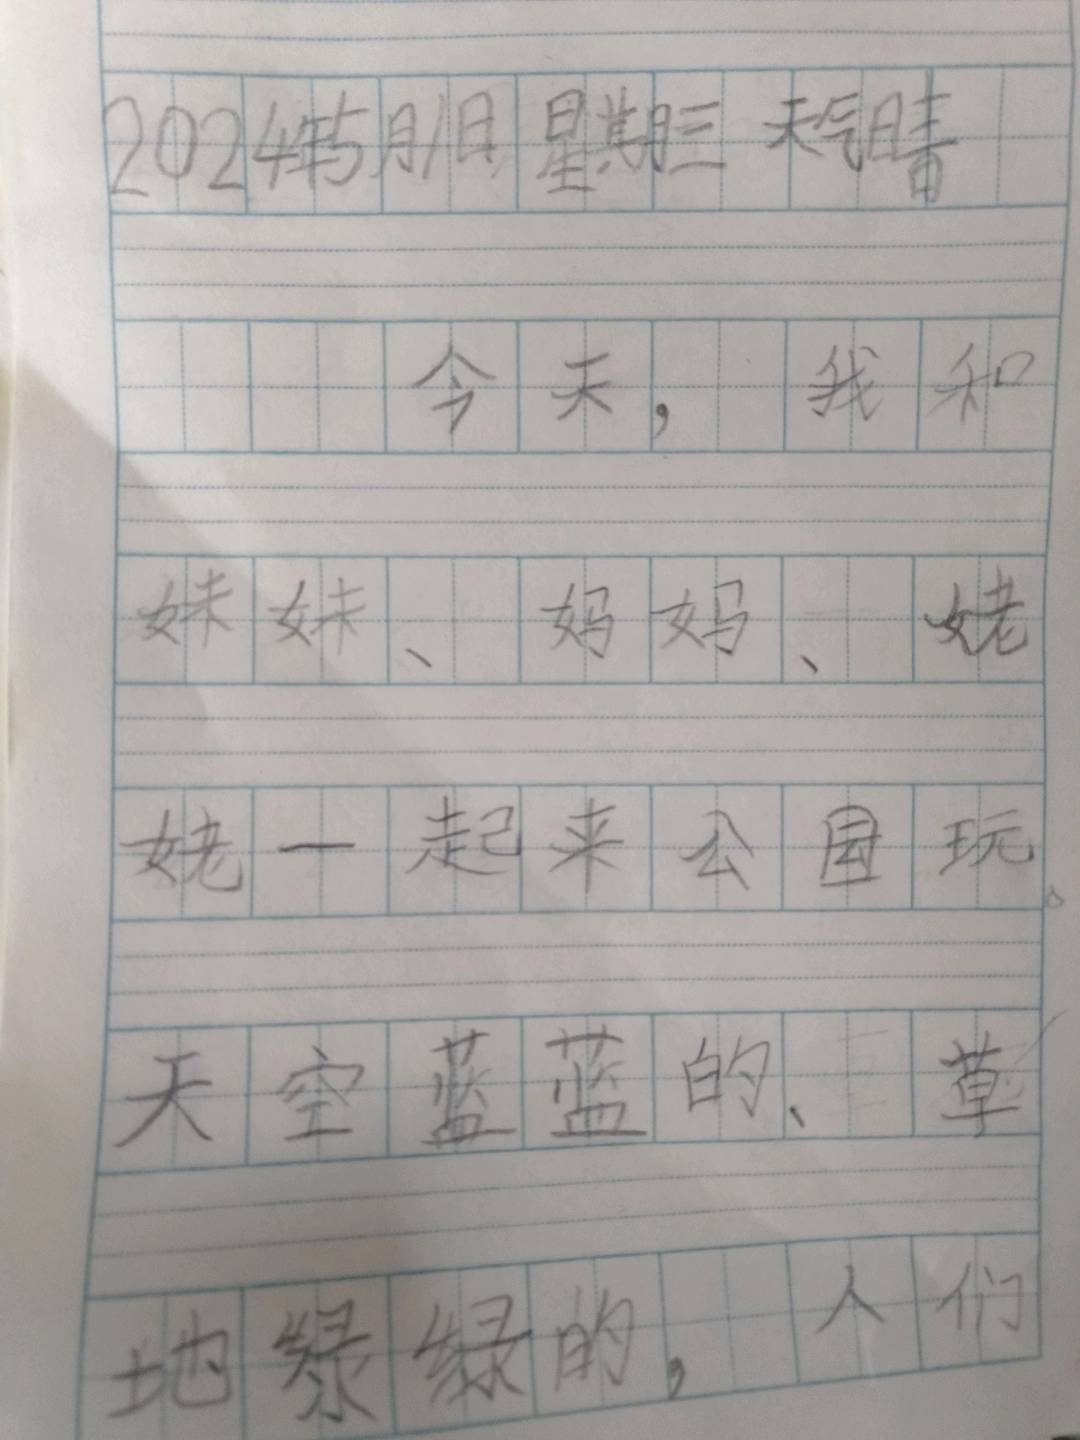 2024年5月1日 星期三 天气晴
今天，我和
妹妹、妈妈、姥
姥一起来公园玩。
天空蓝蓝的、草
地绿绿的，人们